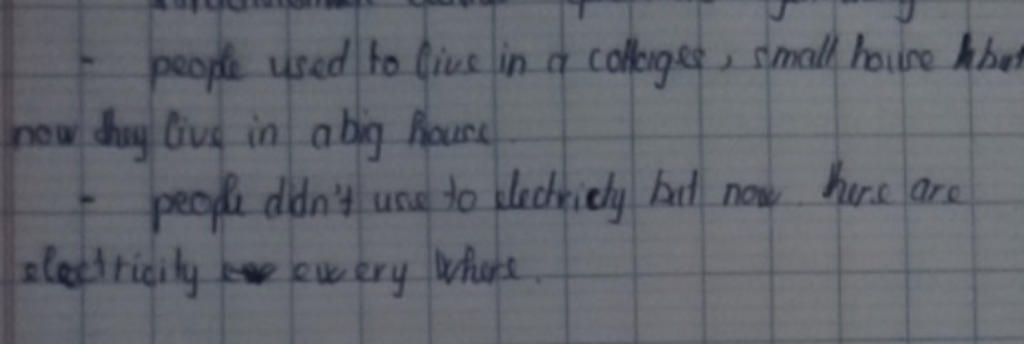 - people used to live in a cottages, small house but
now they live in a big house
- people didn't use to electricity but now here are
electricity every where.